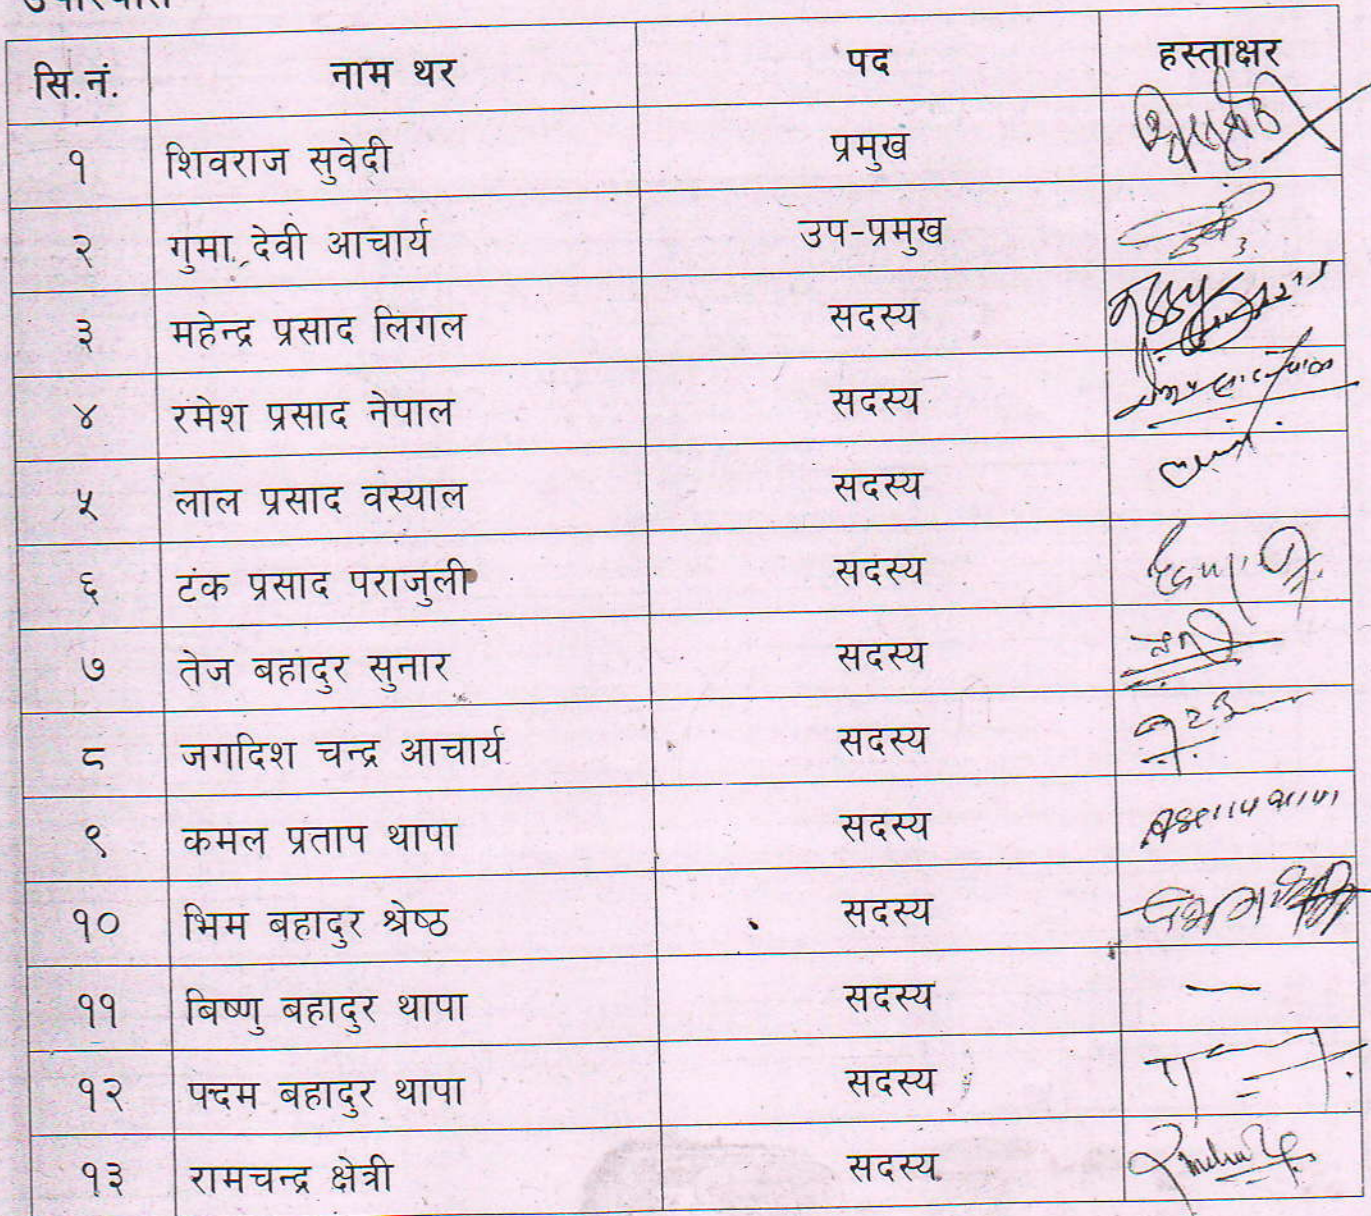 सि.नं. नाम थर पद हस्ताक्षर
१ शिवराज सुवेदी प्रमुख
२ गुमा देवी आचार्य उप-प्रमुख
३ महेन्द्र प्रसाद लिगल सदस्य
४ रमेश प्रसाद नेपाल सदस्य
५ लाल प्रसाद वस्याल सदस्य
६ टंक प्रसाद पराजुली सदस्य
७ तेज बहादुर सुनार सदस्य
८ जगदिश चन्द्र आचार्य सदस्य
९ कमल प्रताप थापा सदस्य
१० भिम बहादुर श्रेष्ठ सदस्य
११ बिष्णु बहादुर थापा सदस्य —
१२ पदम बहादुर थापा सदस्य
१३ रामचन्द्र क्षेत्री सदस्य